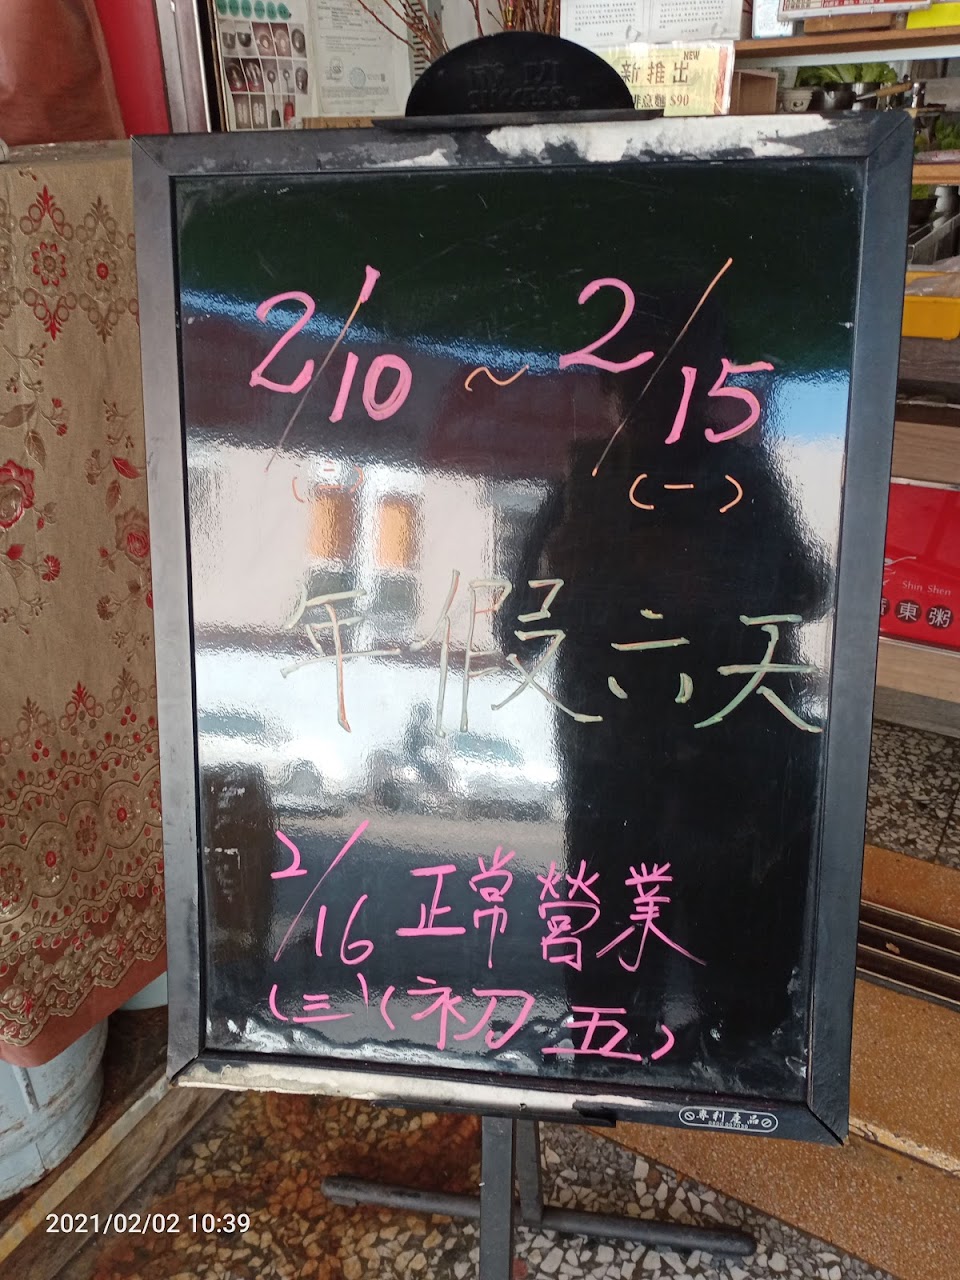 NEW
新推出
意麵 $90
2/10 ~ 2/15
(三) (一)
年假六天
2/16 正常營業
(三)(初五)
Shin Shen
廣東粥
專利產品
2021/02/02 10:39